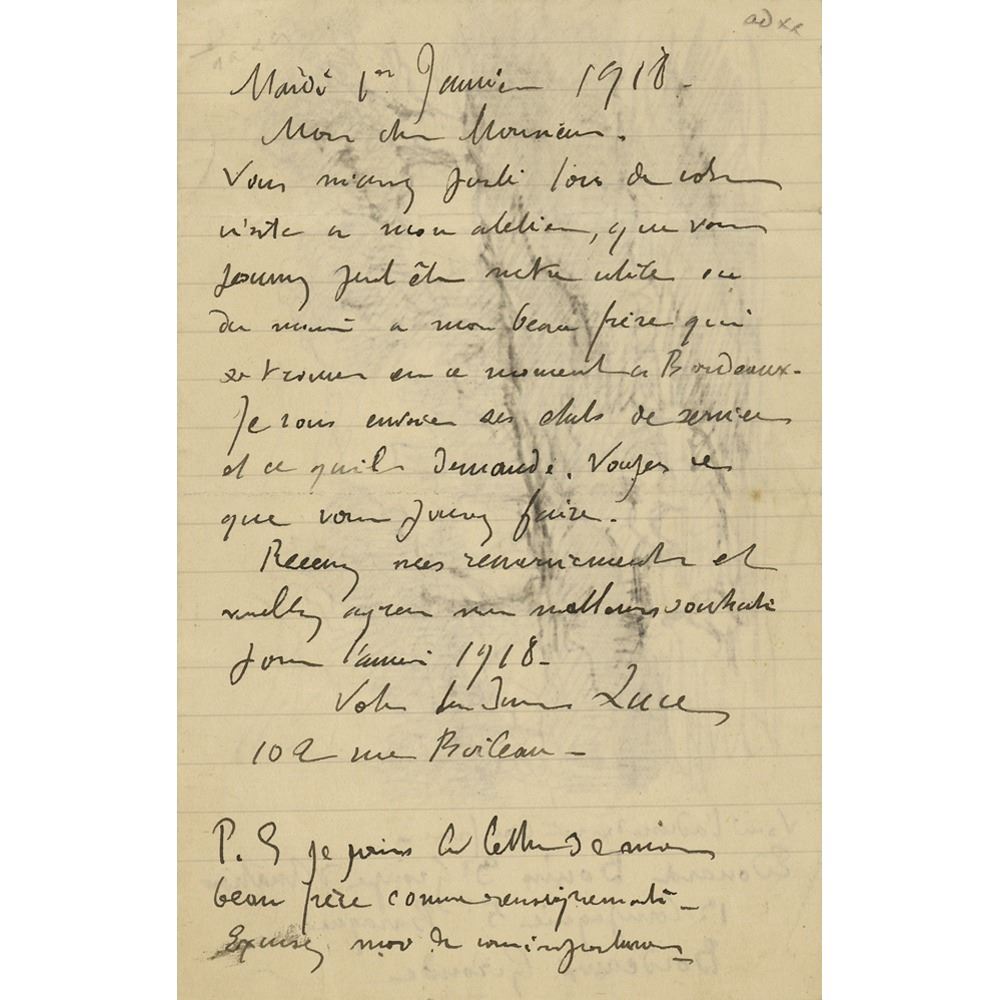 Mardi 1er Janvier 1918 -
Mon cher Monsieur.
Vous m'avez parlé lors de votre
visite a mon atelier, que vous
pouvez peut être m'etre utile ou
du moins a mon beau frère qui
se trouve en ce moment a Bordeaux -
Je vous envoie ses etats de service
et ce qu'il demande. Voyez ce
que vous pouvez faire.
Recevez mes remerciements et
veuillez agreer mes meilleurs souhaits
pour l'année 1918 -
Votre bien Luce
102 rue Boileau -
P. S je joins la lettre de mon
beau frère comme renseignements -
Excusez moi de vous importuner